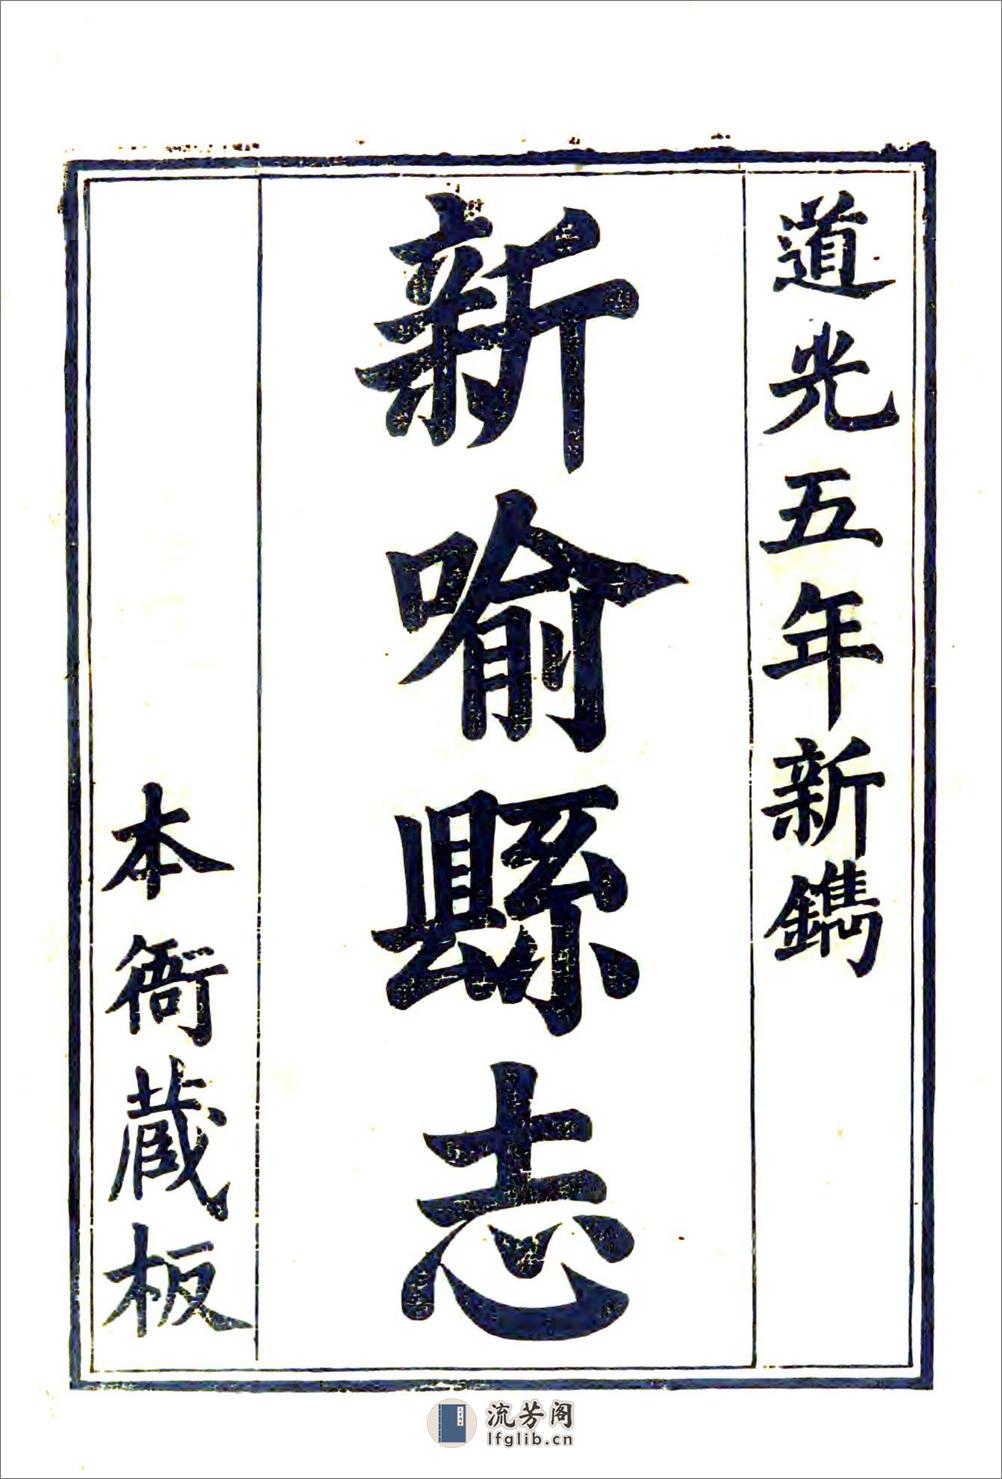 道光五年新鐫
新喻縣志
本衙藏板
流芳阁
lfglib.cn